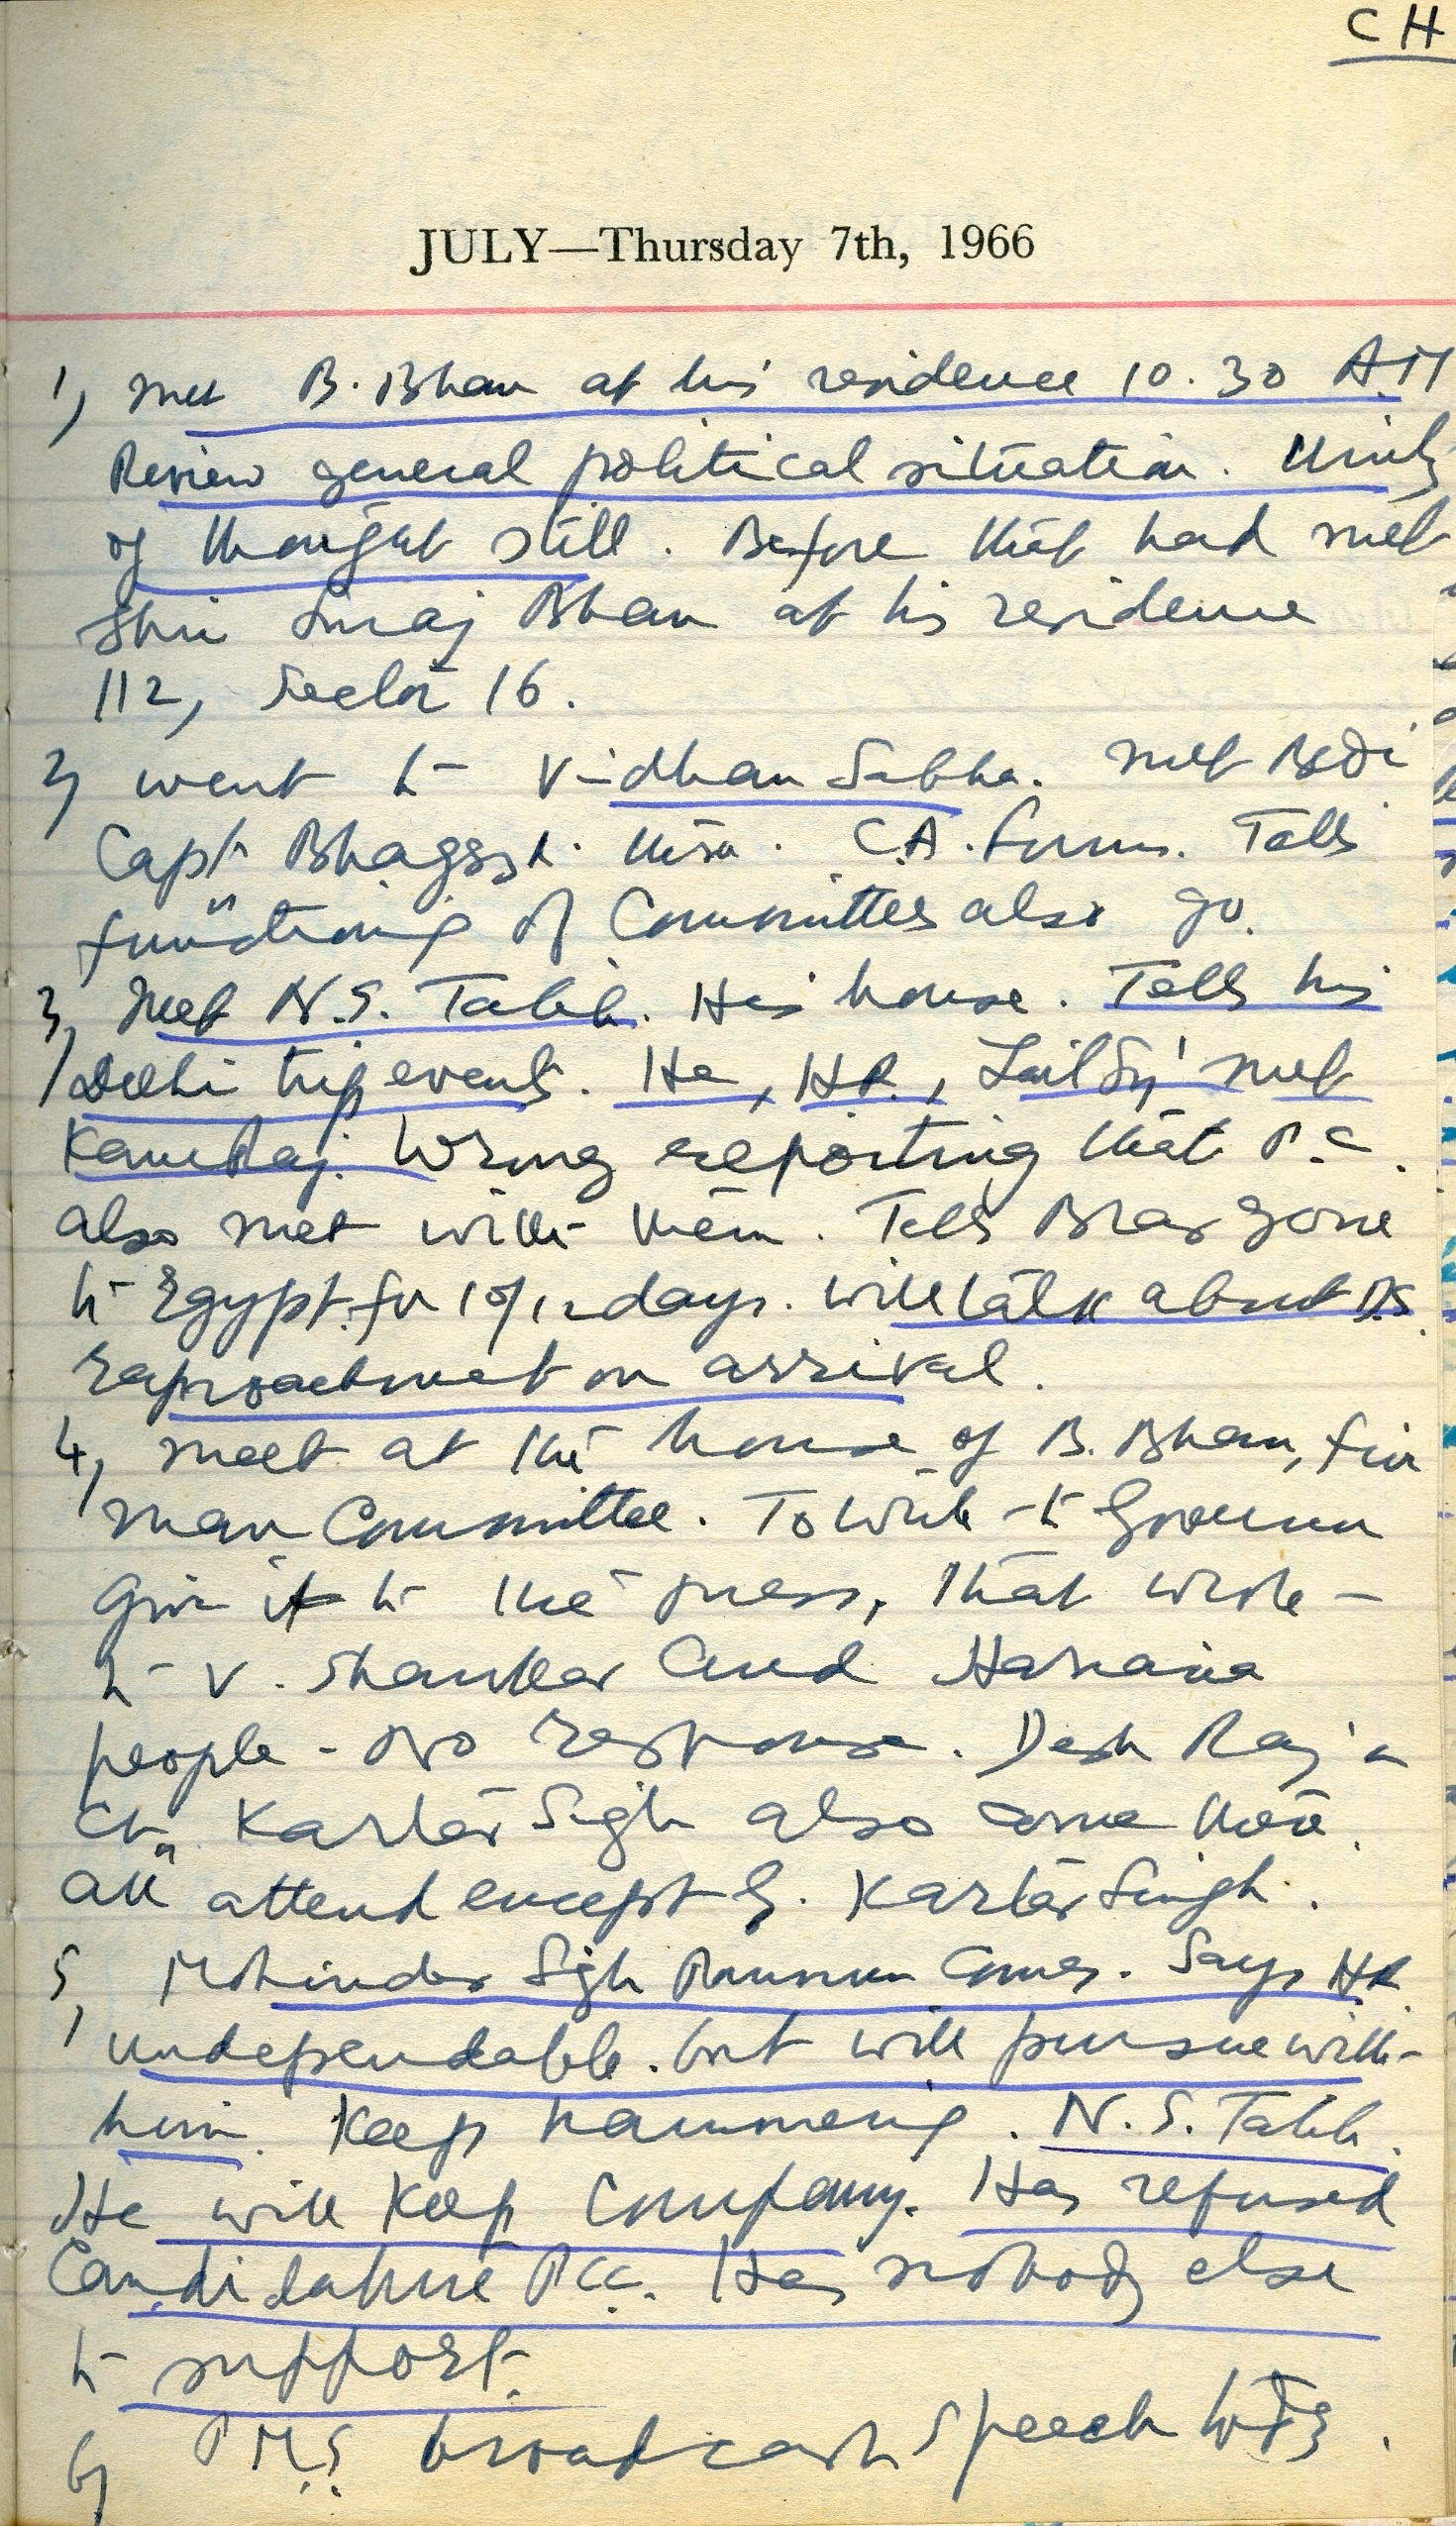 CH
JULY—Thursday 7th, 1966
1, Met B. Bhan at his residence 10.30 A.M
Review general political situation. Unity
of thought still. Before that had met
Shri Suraj Bhan at his residence
112, Sector 16.
2, went to Vidhan Sabha. Met Bedi
Capt Bhag there. C.A. Tells
functioning of Committees also go.
3, Meet N.S. Talib. His house. Tells his
Delhi trip events. He, H.R., met
KamRaj. Wrong reporting that P.C.
also met with them. Tells Brar gone
to Egypt for 10/12 days. will talk about D.S.
raproachmet on arrival.
4, meet at the house of B. Bhan, five
man Committee. To write to Governor
Give it to the press, that wrote
to V. Shanker and Hariana
people - No response. Desh Raj
Ch. Kartar Sigh also come there.
All attend except G. Kartar Singh.
5, Mohinder Sigh comes. Says H.R.
undependable. but will pursue with
him. Keep hammering. N.S. Talib.
He will keep company. Has refused
Candidature P.C.C. Has nobody else
to support.
6, P.M.S. broadcash speech